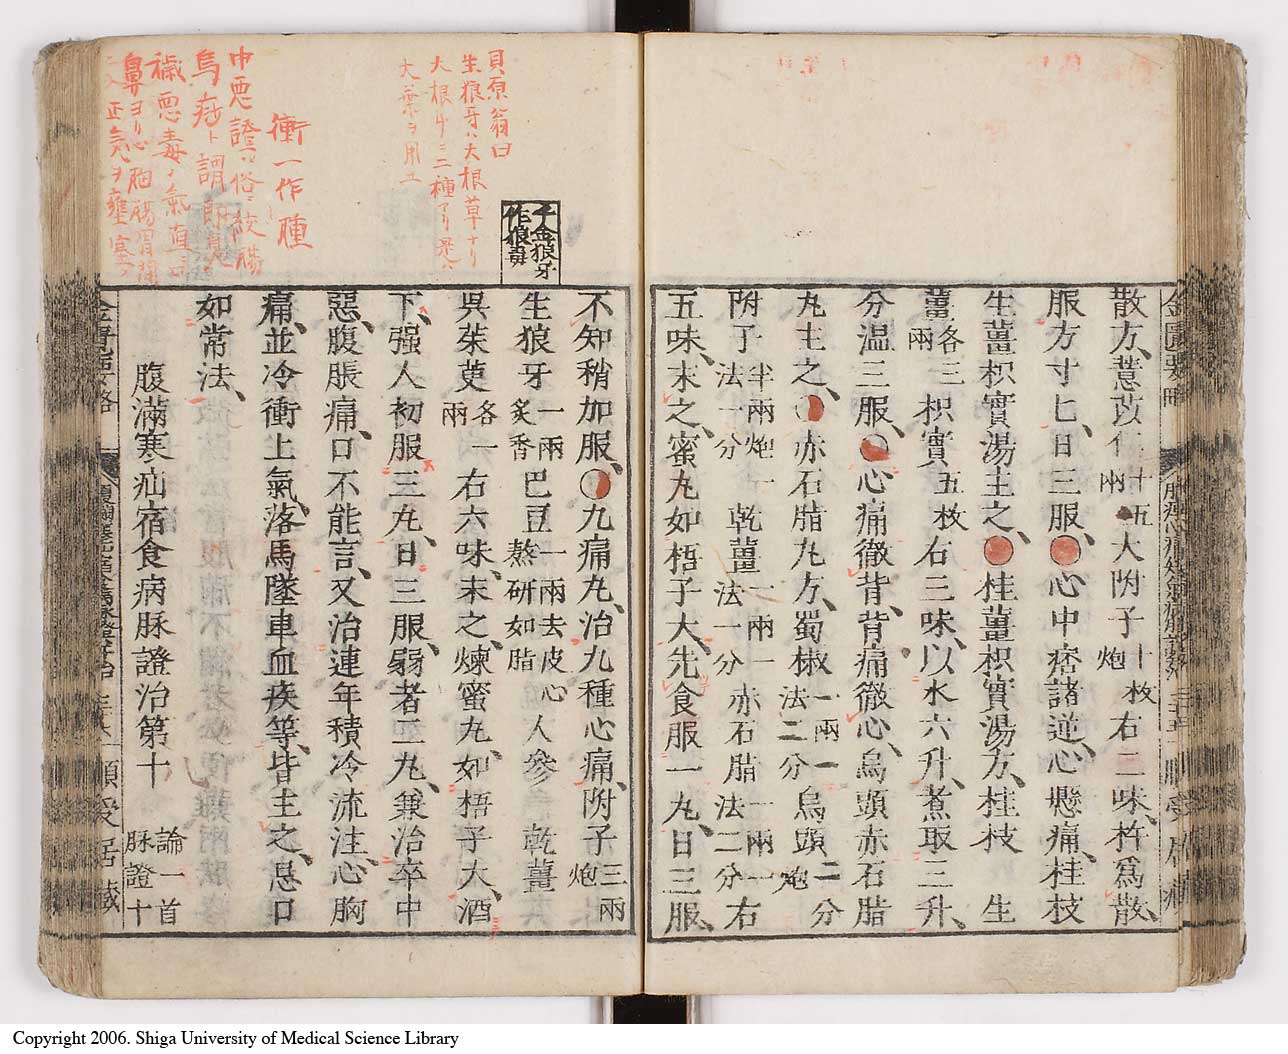 散方、薏苡仁十五兩大附子十枚炮右二味、杵爲散、
服方寸匕、日三服、心中痞諸逆、心懸痛、桂枝
生薑枳實湯主之、桂薑枳實湯方、桂枝生
薑各三兩枳實五枚右三味、以水六升、煮取三升、
分温三服、心痛徹背、背痛徹心、烏頭赤石脂
丸主之、赤石脂丸方、蜀椒一兩一法二分烏頭一分炮
附子半兩炮一法一分乾薑一兩一法一分赤石脂一兩一法二分右
五味、末之、蜜丸如梧子大、先食服一丸、日三服、
不知稍加服、九痛丸、治九種心痛、附子三兩炮
生狼牙一兩炙香巴豆一兩去皮心熬研如脂人參乾薑
吳茱萸各一兩右六味、末之、煉蜜丸、如梧子大、酒
下、强人初服三丸、日三服、弱者二丸、兼治卒中
惡、腹脹痛、口不能言、又治連年積冷流注、心胸
痛、並冷衝上氣、落馬墜車血疾等、皆主之、忌口
如常法、
腹滿寒疝宿食病脉證治第十 論一首脉證十
千金狼牙
作狼毒
貝原翁曰
生狼牙ハ大根草ナリ
大根牛ニ三種アリ是ハ
大葉ヲ用ユ
衝一作腫
中惡證ハ俗ニ絞腸
馬痧ト謂
穢惡毒ノ氣直
鼻ヨリ心胸腸胃
正氣ヲ壅塞
金匱要略